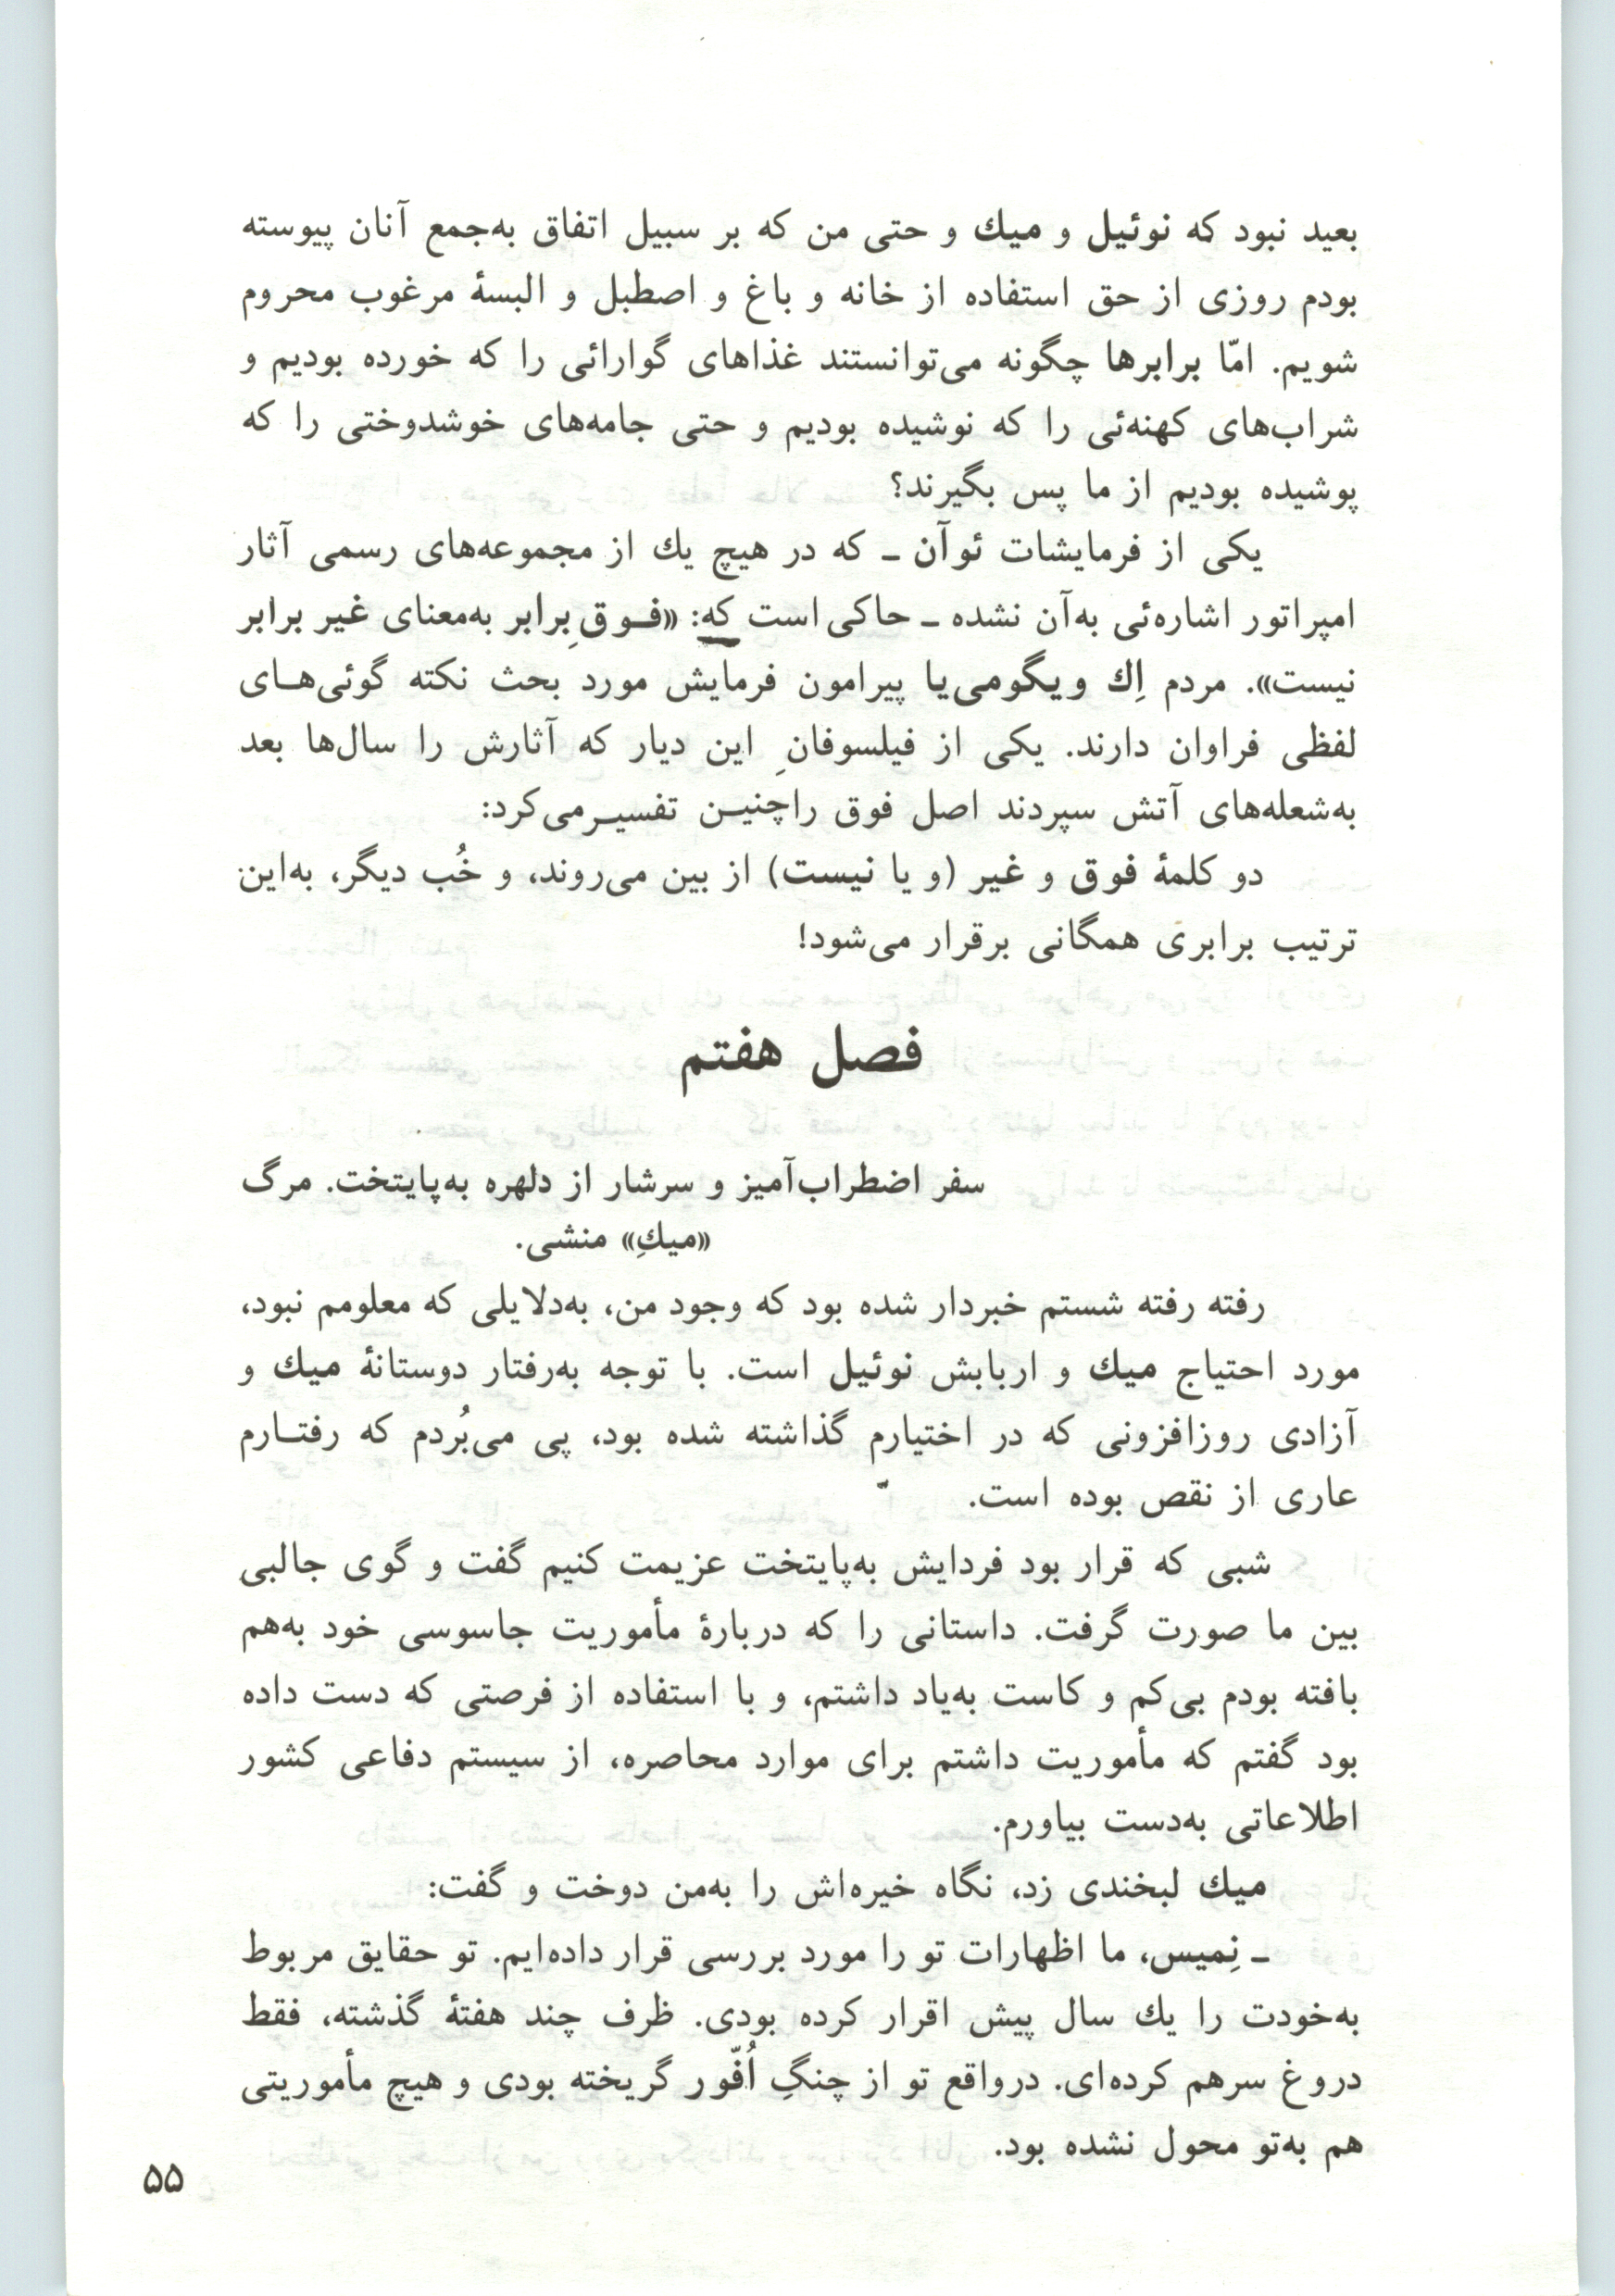 بعید نبود که نوئیل و میك و حتی من که بر سبیل اتفاق به‌جمع آنان پیوسته
بودم روزی از حق استفاده از خانه و باغ و اصطبل و البسهٔ مرغوب محروم
شویم. امّا برابرها چگونه می‌توانستند غذاهای گوارائی را که خورده بودیم و
شراب‌های کهنه‌ئی را که نوشیده بودیم و حتی جامه‌های خوشدوختی را که
پوشیده بودیم از ما پس بگیرند؟
یکی از فرمایشات ئوآن ـ که در هیچ یك از مجموعه‌های رسمی آثار
امپراتور اشاره‌ئی به‌آن نشده ـ حاکی است که: «فـوقِ‌برابر به‌معنای غیر برابر
نیست». مردم اِك ویگومی‌یا پیرامون فرمایش مورد بحث نکته گوئی‌هـای
لفظی فراوان دارند. یکی از فیلسوفانِ این دیار که آثارش را سال‌ها بعد
به‌شعله‌های آتش سپردند اصل فوق راچنیـن تفسیـرمی‌کرد:
دو کلمهٔ فوق و غیر (و یا نیست) از بین می‌روند، و خُب دیگر، به‌این
ترتیب برابری همگانی برقرار می‌شود!
فصل هفتم
سفر اضطراب‌آمیز و سرشار از دلهره به‌پایتخت. مرگ
«میكِ» منشی.
رفته رفته شستم خبردار شده بود که وجود من، به‌دلایلی که معلومم نبود،
مورد احتیاج میك و اربابش نوئیل است. با توجه به‌رفتار دوستانهٔ میك و
آزادی روزافزونی که در اختیارم گذاشته شده بود، پی می‌بُردم که رفتـارم
عاری از نقص بوده است.
شبی که قرار بود فردایش به‌پایتخت عزیمت کنیم گفت و گوی جالبی
بین ما صورت گرفت. داستانی را که دربارهٔ مأموریت جاسوسی خود به‌هم
بافته بودم بی‌کم و کاست به‌یاد داشتم، و با استفاده از فرصتی که دست داده
بود گفتم که مأموریت داشتم برای موارد محاصره، از سیستم دفاعی کشور
اطلاعاتی به‌دست بیاورم.
میك لبخندی زد، نگاه خیره‌اش را به‌من دوخت و گفت:
ـ نِمیس، ما اظهارات تو را مورد بررسی قرار داده‌ایم. تو حقایق مربوط
به‌خودت را یك سال پیش اقرار کرده بودی. ظرف چند هفتهٔ گذشته، فقط
دروغ سرهم کرده‌ای. درواقع تو از چنگِ اُفّور گریخته بودی و هیچ مأموریتی
هم به‌تو محول نشده بود.
۵۵